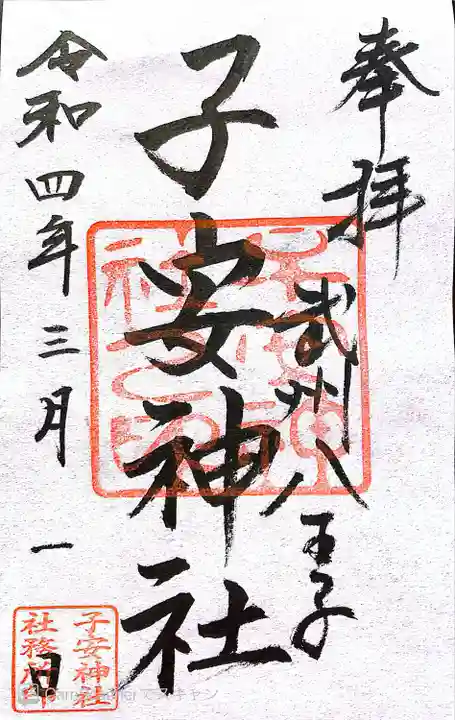 奉拝
武州八王子
子安神社
令和四年三月一日
子安神社
社務所印